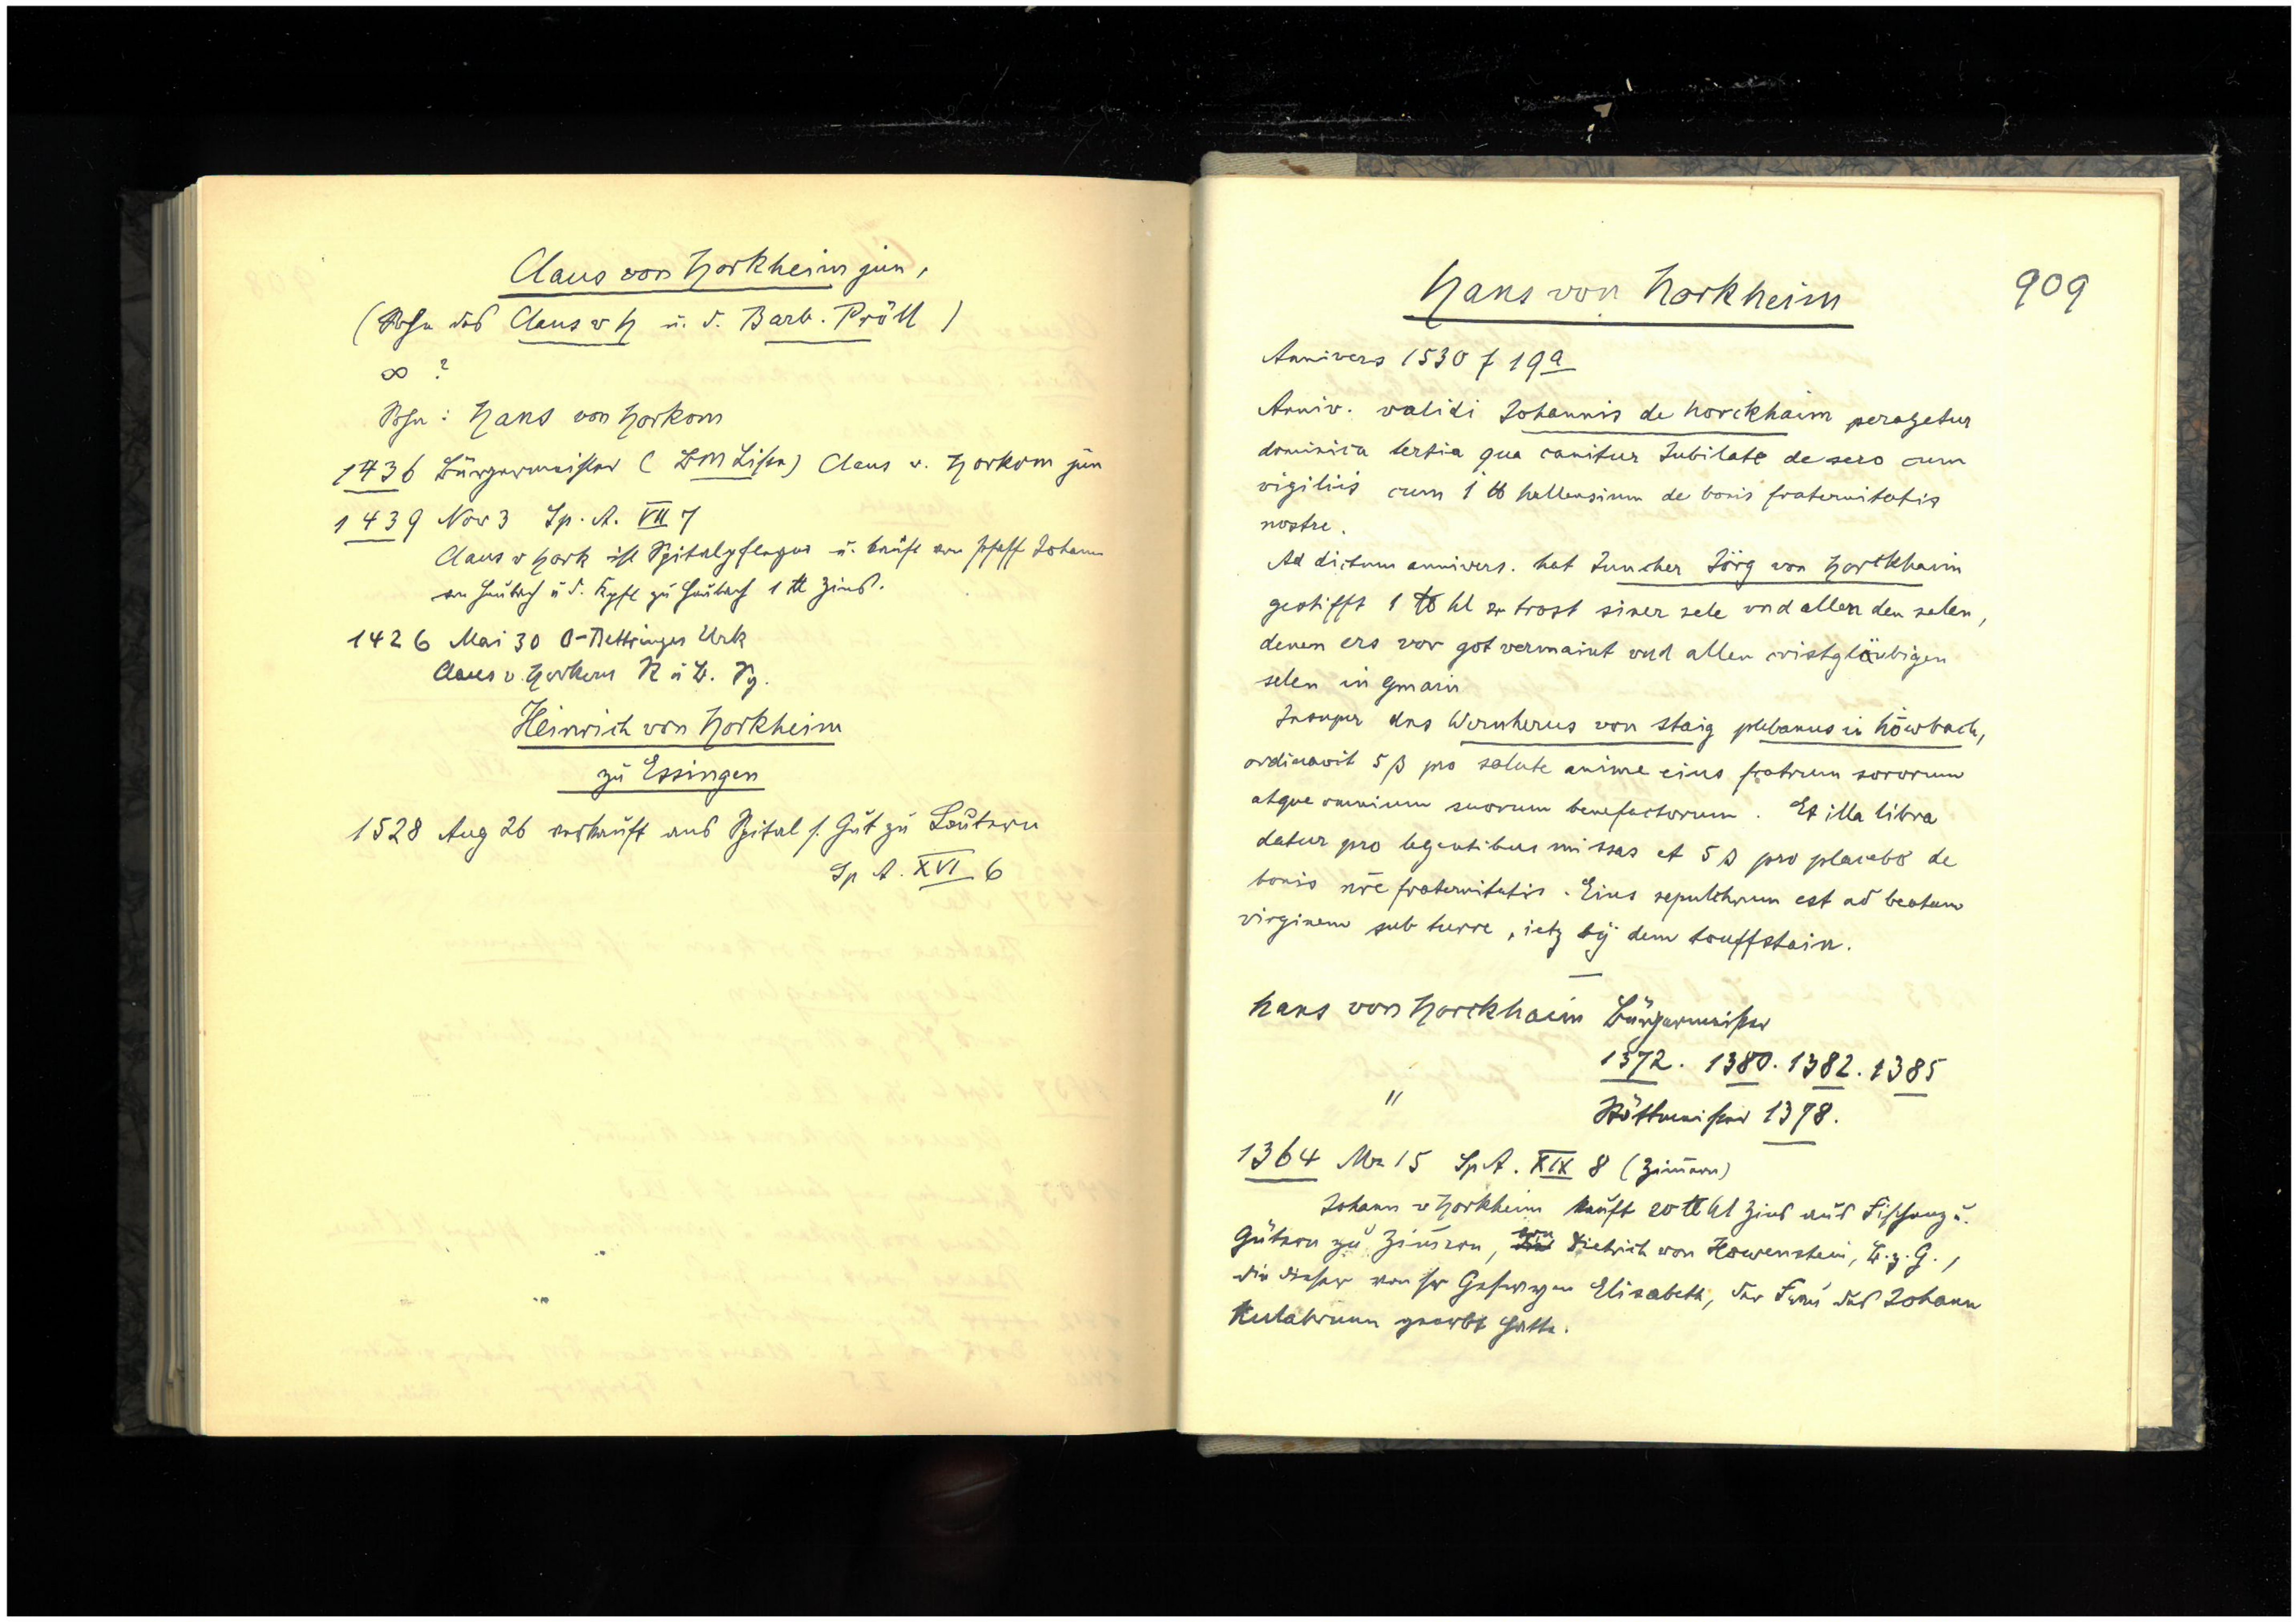 Claus von Horkheim jun,
(Sohn des Claus v H u. d. Barb. Pröll)
∞ ?
Sohn: Hans von Horkom
1436 Bürgermeister (BM Liste) Claus v. Horkom jun
1439 Nov 3 Sp. A. VII 7
Claus v Hork ist Spitalpfleger u. kauft von Pfaff Johann
von Heubach u. d. zu Heubach 1 ℔ Zins.
1426 Mai 30 O-Bettringer Urk
Claus v. Horkom R u B.
Heinrich von Horkheim
zu Essingen
1528 Aug 26 verkauft ans Spital s. Gut zu Lautern
Sp A. XVI 6
909
Hans von Horkheim
Annivers 1530 f 19a
Anniv. validi Johannis de horckhaim peragetur
dominica tertia qua canitur Jubilate de sero cum
vigiliis cum 1 ℔ hallensium de bonis fraternitatis
nostre.
Ad dictum annivers. hat Juncher Jörg von Horckhaim
gestifft 1 ℔ hl ze trost siner sele und allen den selen,
denen ers vor got vermaint und allen cristgläubigen
selen in gmain
Insuper dns Wernherus von Staig plebanus in höwbach,
ordinavit 5 β pro salute anime eius fratrum sororum
atque omnium suorum benefactorum. Et illa libra
datur pro legentibus missas et 5 β pro placebo de
bonis nre fraternitatis. Eius sepulchrum est ad beatam
virginem sub turre, ietz bÿ dem touffstain.
hans von Horckhaim Bürgermeister
1372. 1380. 1382. 1385
" Stättmeister 1378.
1364 Mz 15 Sp A. XIX 8 (Zimmern)
Johann v Horkheim kauft 20 ℔ hl Zins aus Fischenz u.
Gütern zu Zimmern, von Dietrich von Howenstein, B. z. G.,
die dieser von sr Elisabeth, der Frau des Johann
Kulabrunn geerbt hatte.